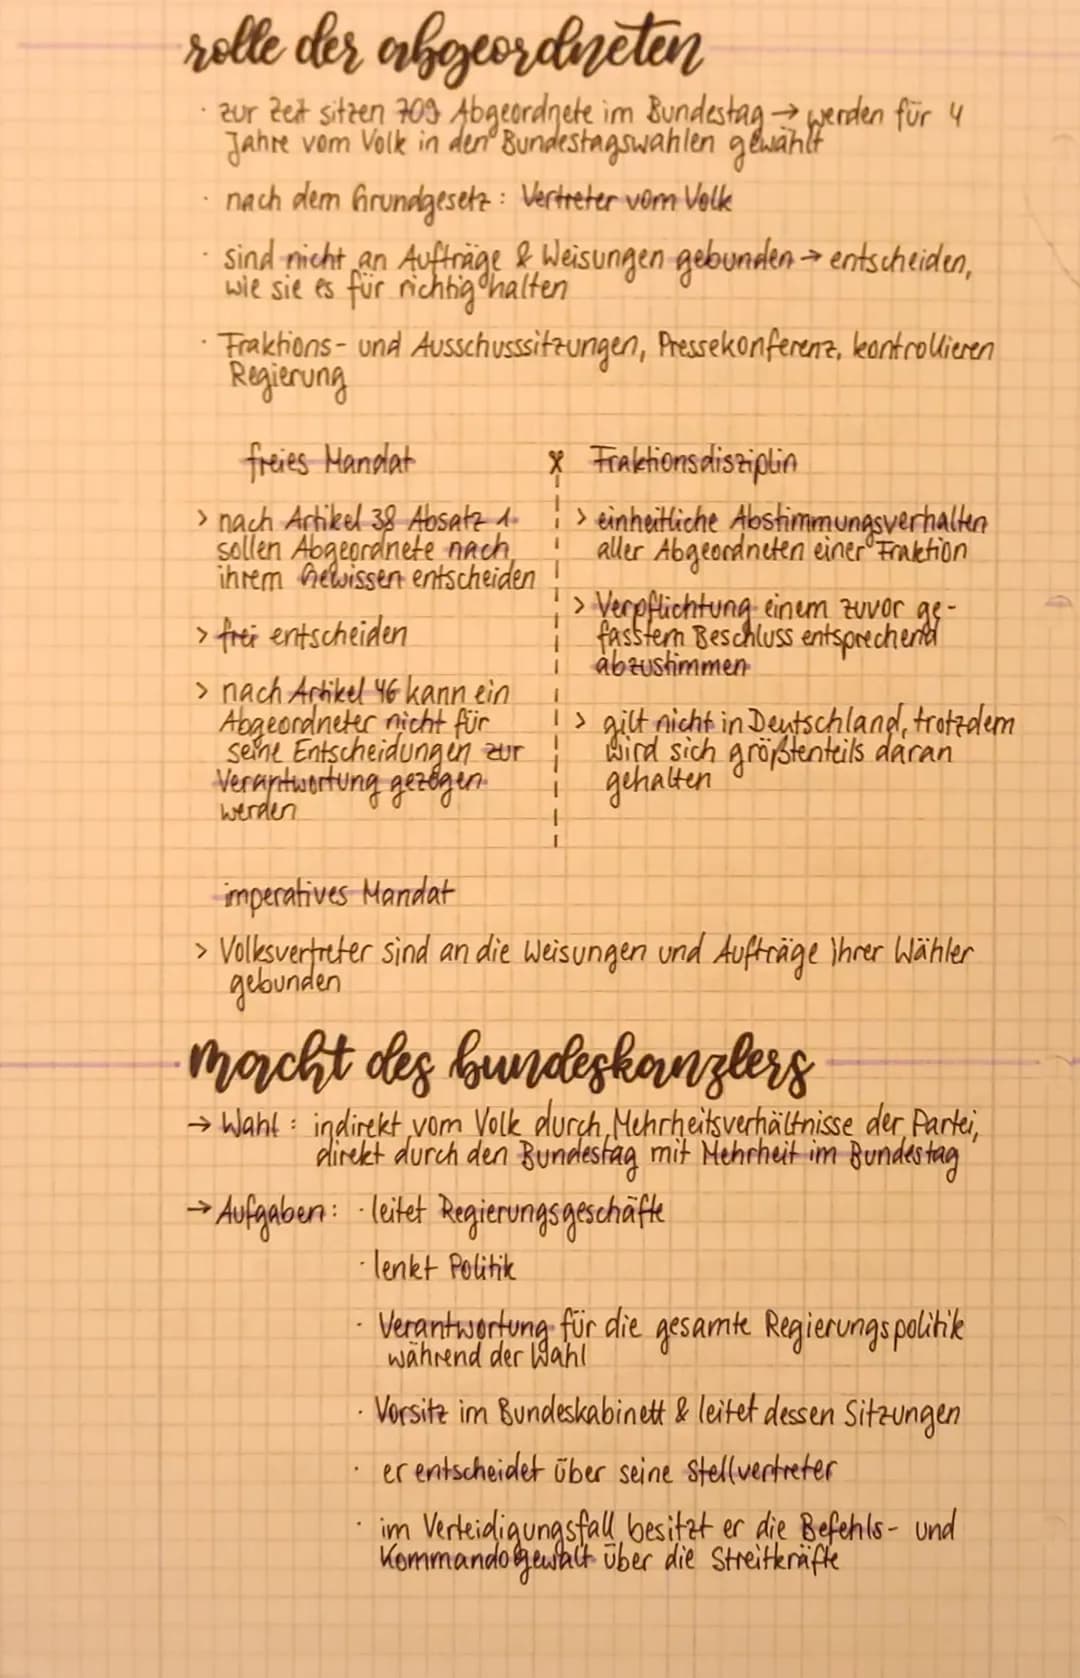 rolle der abgeordneten
· zur Zeit sitzen 709 Abgeordnete im Bundestag → werden für 4
Jahre vom Volk in den Bundestagswahlen gewählt
· nach dem Grundgesetz: Vertreter vom Volk
· sind nicht an Aufträge & Weisungen gebunden → entscheiden,
wie sie es für richtig halten
· Fraktions- und Ausschusssitzungen, Pressekonferenz, kontrollieren
Regierung
freies Mandat
> nach Artikel 38 Absatz 1
sollen Abgeordnete nach
ihrem Gewissen entscheiden
> frei entscheiden
> nach Artikel 46 kann ein
Abgeordneter nicht für
seine Entscheidungen zur
Verantwortung gezogen
werden
Fraktionsdisziplin
> einheitliche Abstimmungsverhalten
aller Abgeordneten einer Fraktion
> Verpflichtung einem zuvor ge-
fasstem Beschluss entsprechend
abzustimmen
> gilt nicht in Deutschland, trotzdem
wird sich größtenteils daran
gehalten
imperatives Mandat
> Volksvertreter sind an die Weisungen und Aufträge ihrer Wähler
gebunden
macht des bundeskanzlers
→ Wahl: indirekt vom Volk durch Mehrheitsverhältnisse der Partei,
direkt durch den Bundestag mit Mehrheit im Bundestag
→ Aufgaben: · leitet Regierungsgeschäfte
· lenkt Politik
· Verantwortung für die gesamte Regierungspolitik
während der Wahl
· Vorsitz im Bundeskabinett & leitet dessen Sitzungen
· er entscheidet über seine Stellvertreter
· im Verteidigungsfall besitzt er die Befehls- und
Kommandogewalt über die Streitkräfte